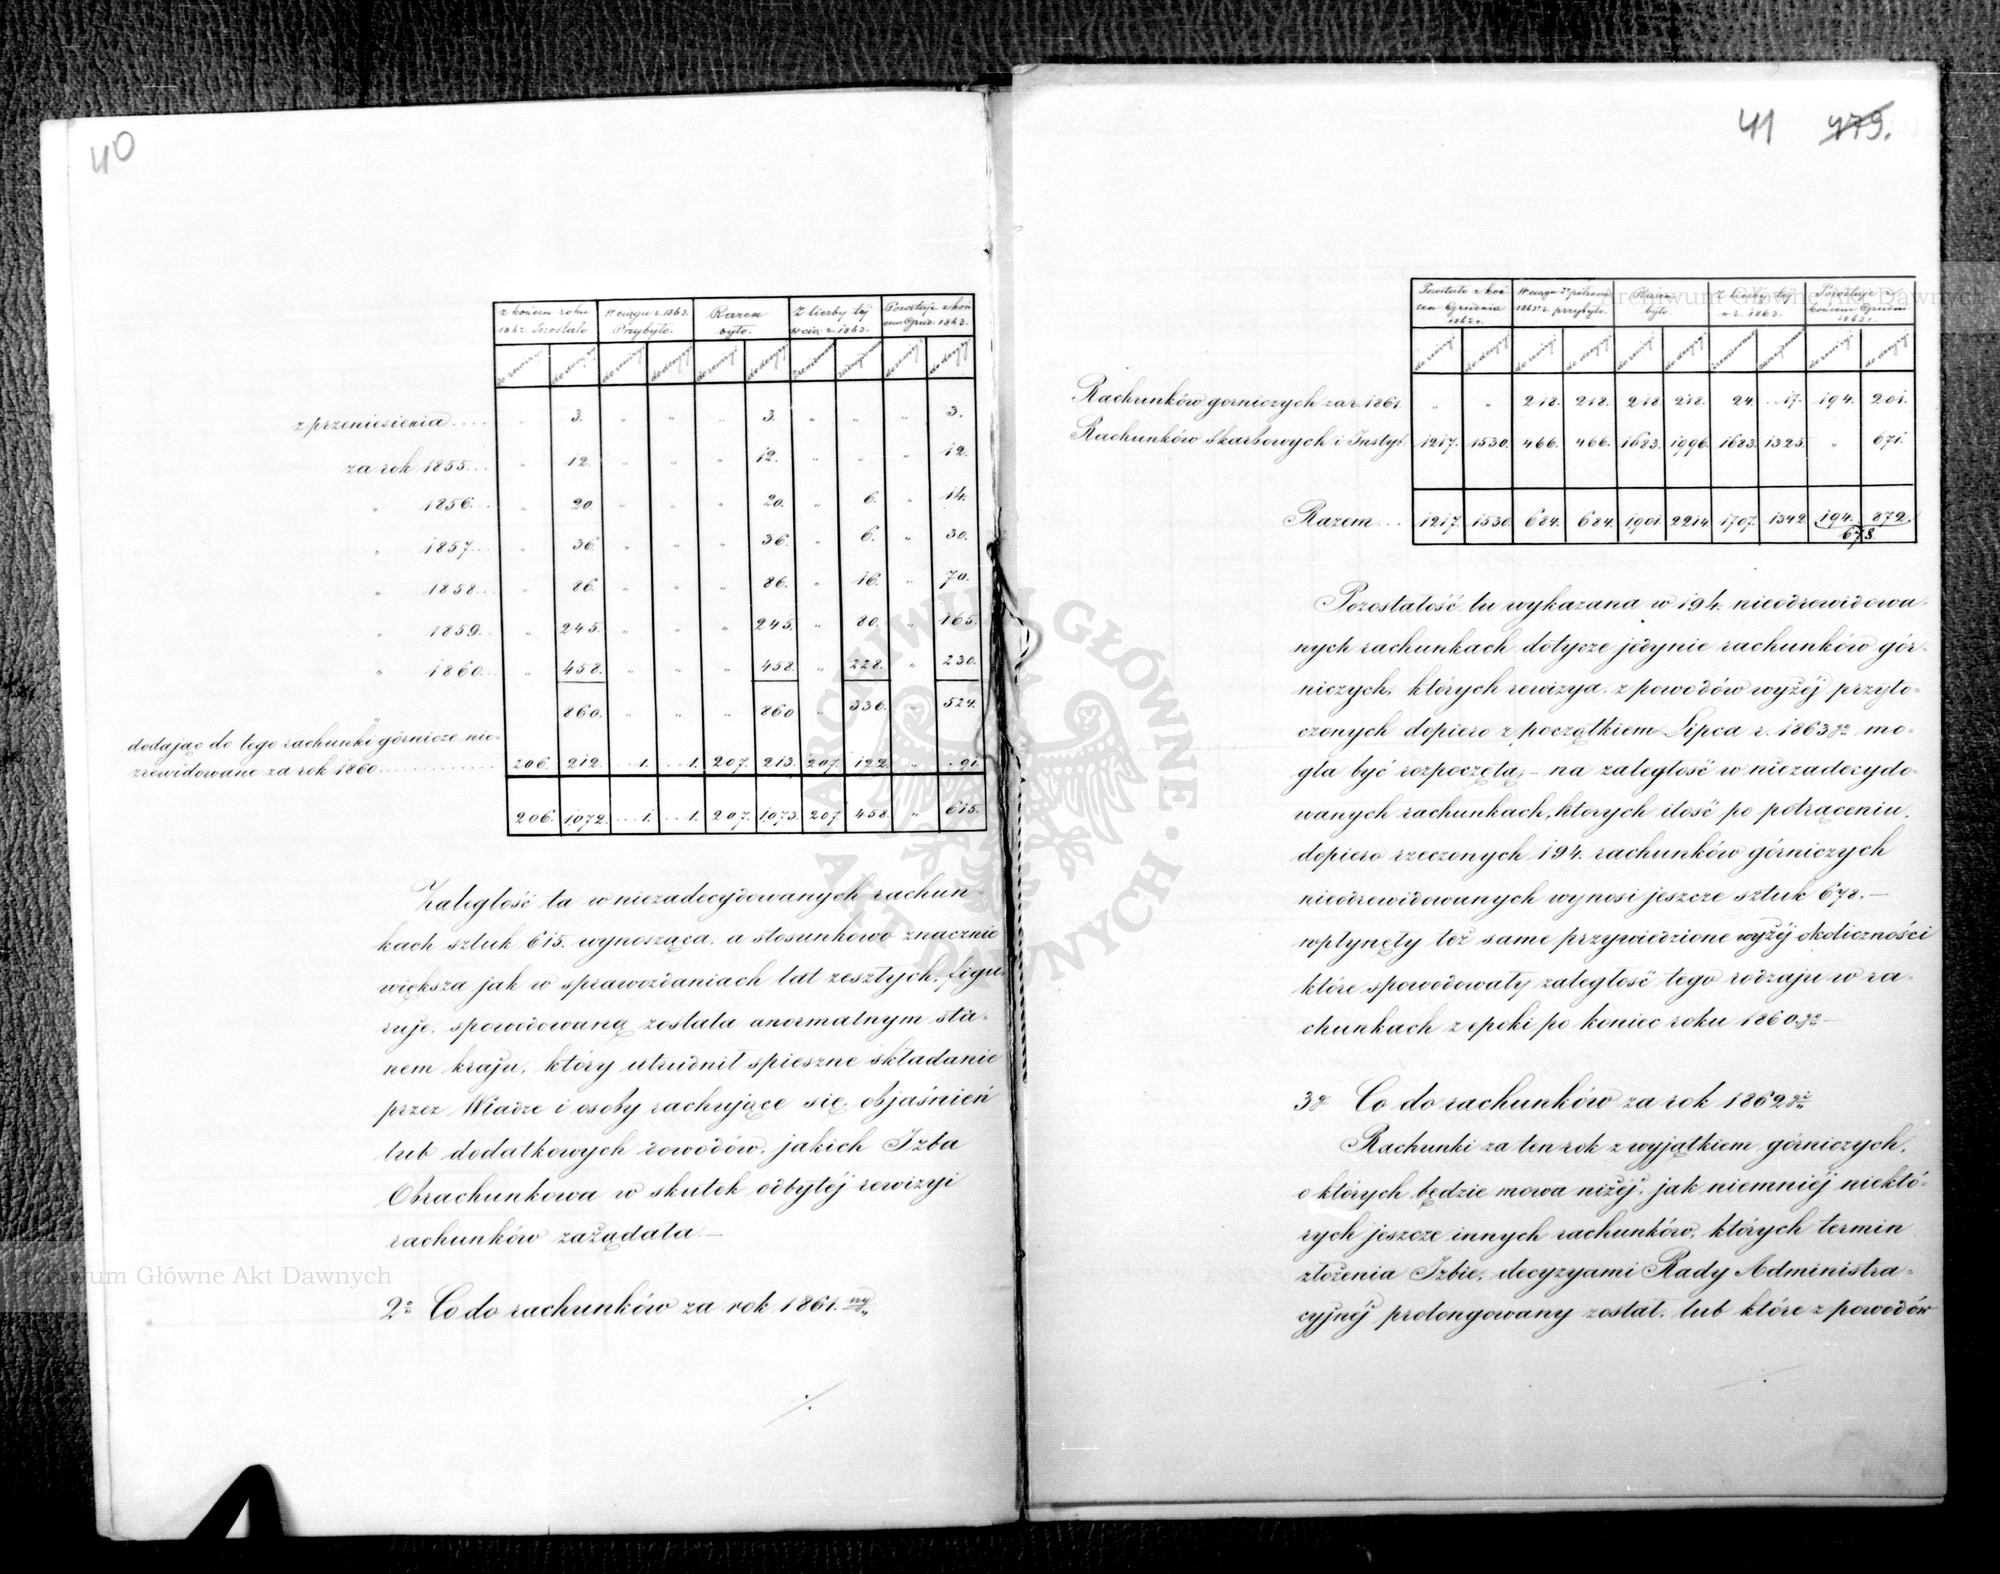 40
z końcem roku 1862. Pozostało
W ciągu r. 1863. Przybyło.
Razem było.
Z liczby tej w cią. r. 1863.
Pozostaje z końcem Grud. 1863.
do rewizyi do decyzyi do rewizyi do decyzyi do rewizyi do decyzyi do rewizyi do decyzyi
z przeniesienia.... " 3. " " " 3. " " " 3.
za rok 1855... " 12. " " " 12. " " " 12.
" 1856... " 20. " " " 20. " 6. " 14.
" 1857... " 36. " " " 36. " 6. " 30.
" 1858... " 86. " " " 86. " 16. " 70.
" 1859... " 245. " " " 245. " 80. " 165.
" 1860... " 458. " " " 458. " 228. " 230.
860. " " " 860 " 336. " 524.
dodając do tego rachunki górnicze nie-
zrewidowane za rok 1860............ 206. 212. ...1. ...1. 207. 213. 207. 122. " .91.
206. 1072. ...1. ...1. 207. 1073. 207 458. " 615.
Zaległość ta w niezadecydowanych rachun-
kach sztuk 615. wynosząca, a stosunkowo znacznie
większa jak w sprawozdaniach lat zeszłych, figu-
ruje, spowodowaną została anormalnym sta-
nem kraju, który utrudnił spieszne składanie
przez Władze i osoby rachujące się, objaśnień
lub dodatkowych dowodów, jakich Izba
Obrachunkowa w skutek odbytéj rewizyi
rachunków zażądała.—
2o Co do rachunków za rok 1861. ny
./.
41 479.
Pozostało z końcem Grudnia 1862 r.
W ciągu 1863 r. przybyło.
Razem było.
Z liczby tej w r. 1863.
Pozostaje z końcem Grudnia 1863 r.
do rewizyi do decyzyi do rewizyi do decyzyi do rewizyi do decyzyi do rewizyi do decyzyi
Rachunków gorniczych za r. 1861. " " 218. 218. 218 218. 24. ..17. 194. 201.
Rachunków Skarbowych i Instyt. 1217. 1530. 466. 466. 1683. 1996. 1683. 1325. " 671.
Razem... 1217. 1530. 684. 684. 1901. 2214 1707. 1342. 194. 872.
678.
Pozostałość tu wykazana w 194. nieodrewidowa-
nych rachunkach dotycze jedynie rachunków gór-
niczych, których rewizya, z powodów wyżéj przyto-
czonych dopiero z początkiem Lipca r. 1863 go mo-
gła być rozpoczętą,— na zaległość w niezadecydo-
wanych rachunkach, których ilość po potrąceniu,
dopiero rzeczonych 194. rachunków górniczych
nieodrewidowanych wynosi jeszcze sztuk 678.—
wpłynęły też same przywiedzione wyżéj okoliczności
które spowodowały zaległość tego rodzaju w ra-
chunkach z epoki po koniec roku 1860. go—
3o Co do rachunków za rok 1862 gi
Rachunki za ten rok z wyjątkiem górniczych,
o których będzie mowa niżéj, jak niemniéj niektó-
rych jeszcze innych rachunków, których termin
złożenia Izbie, decyzyami Rady Administra-
cyjnéj prolongowany został, lub które z powodów
ARCHIWUM GŁÓWNE AKT DAWNYCH
Archiwum Główne Akt Dawnych
Archiwum Główne Akt Dawnych